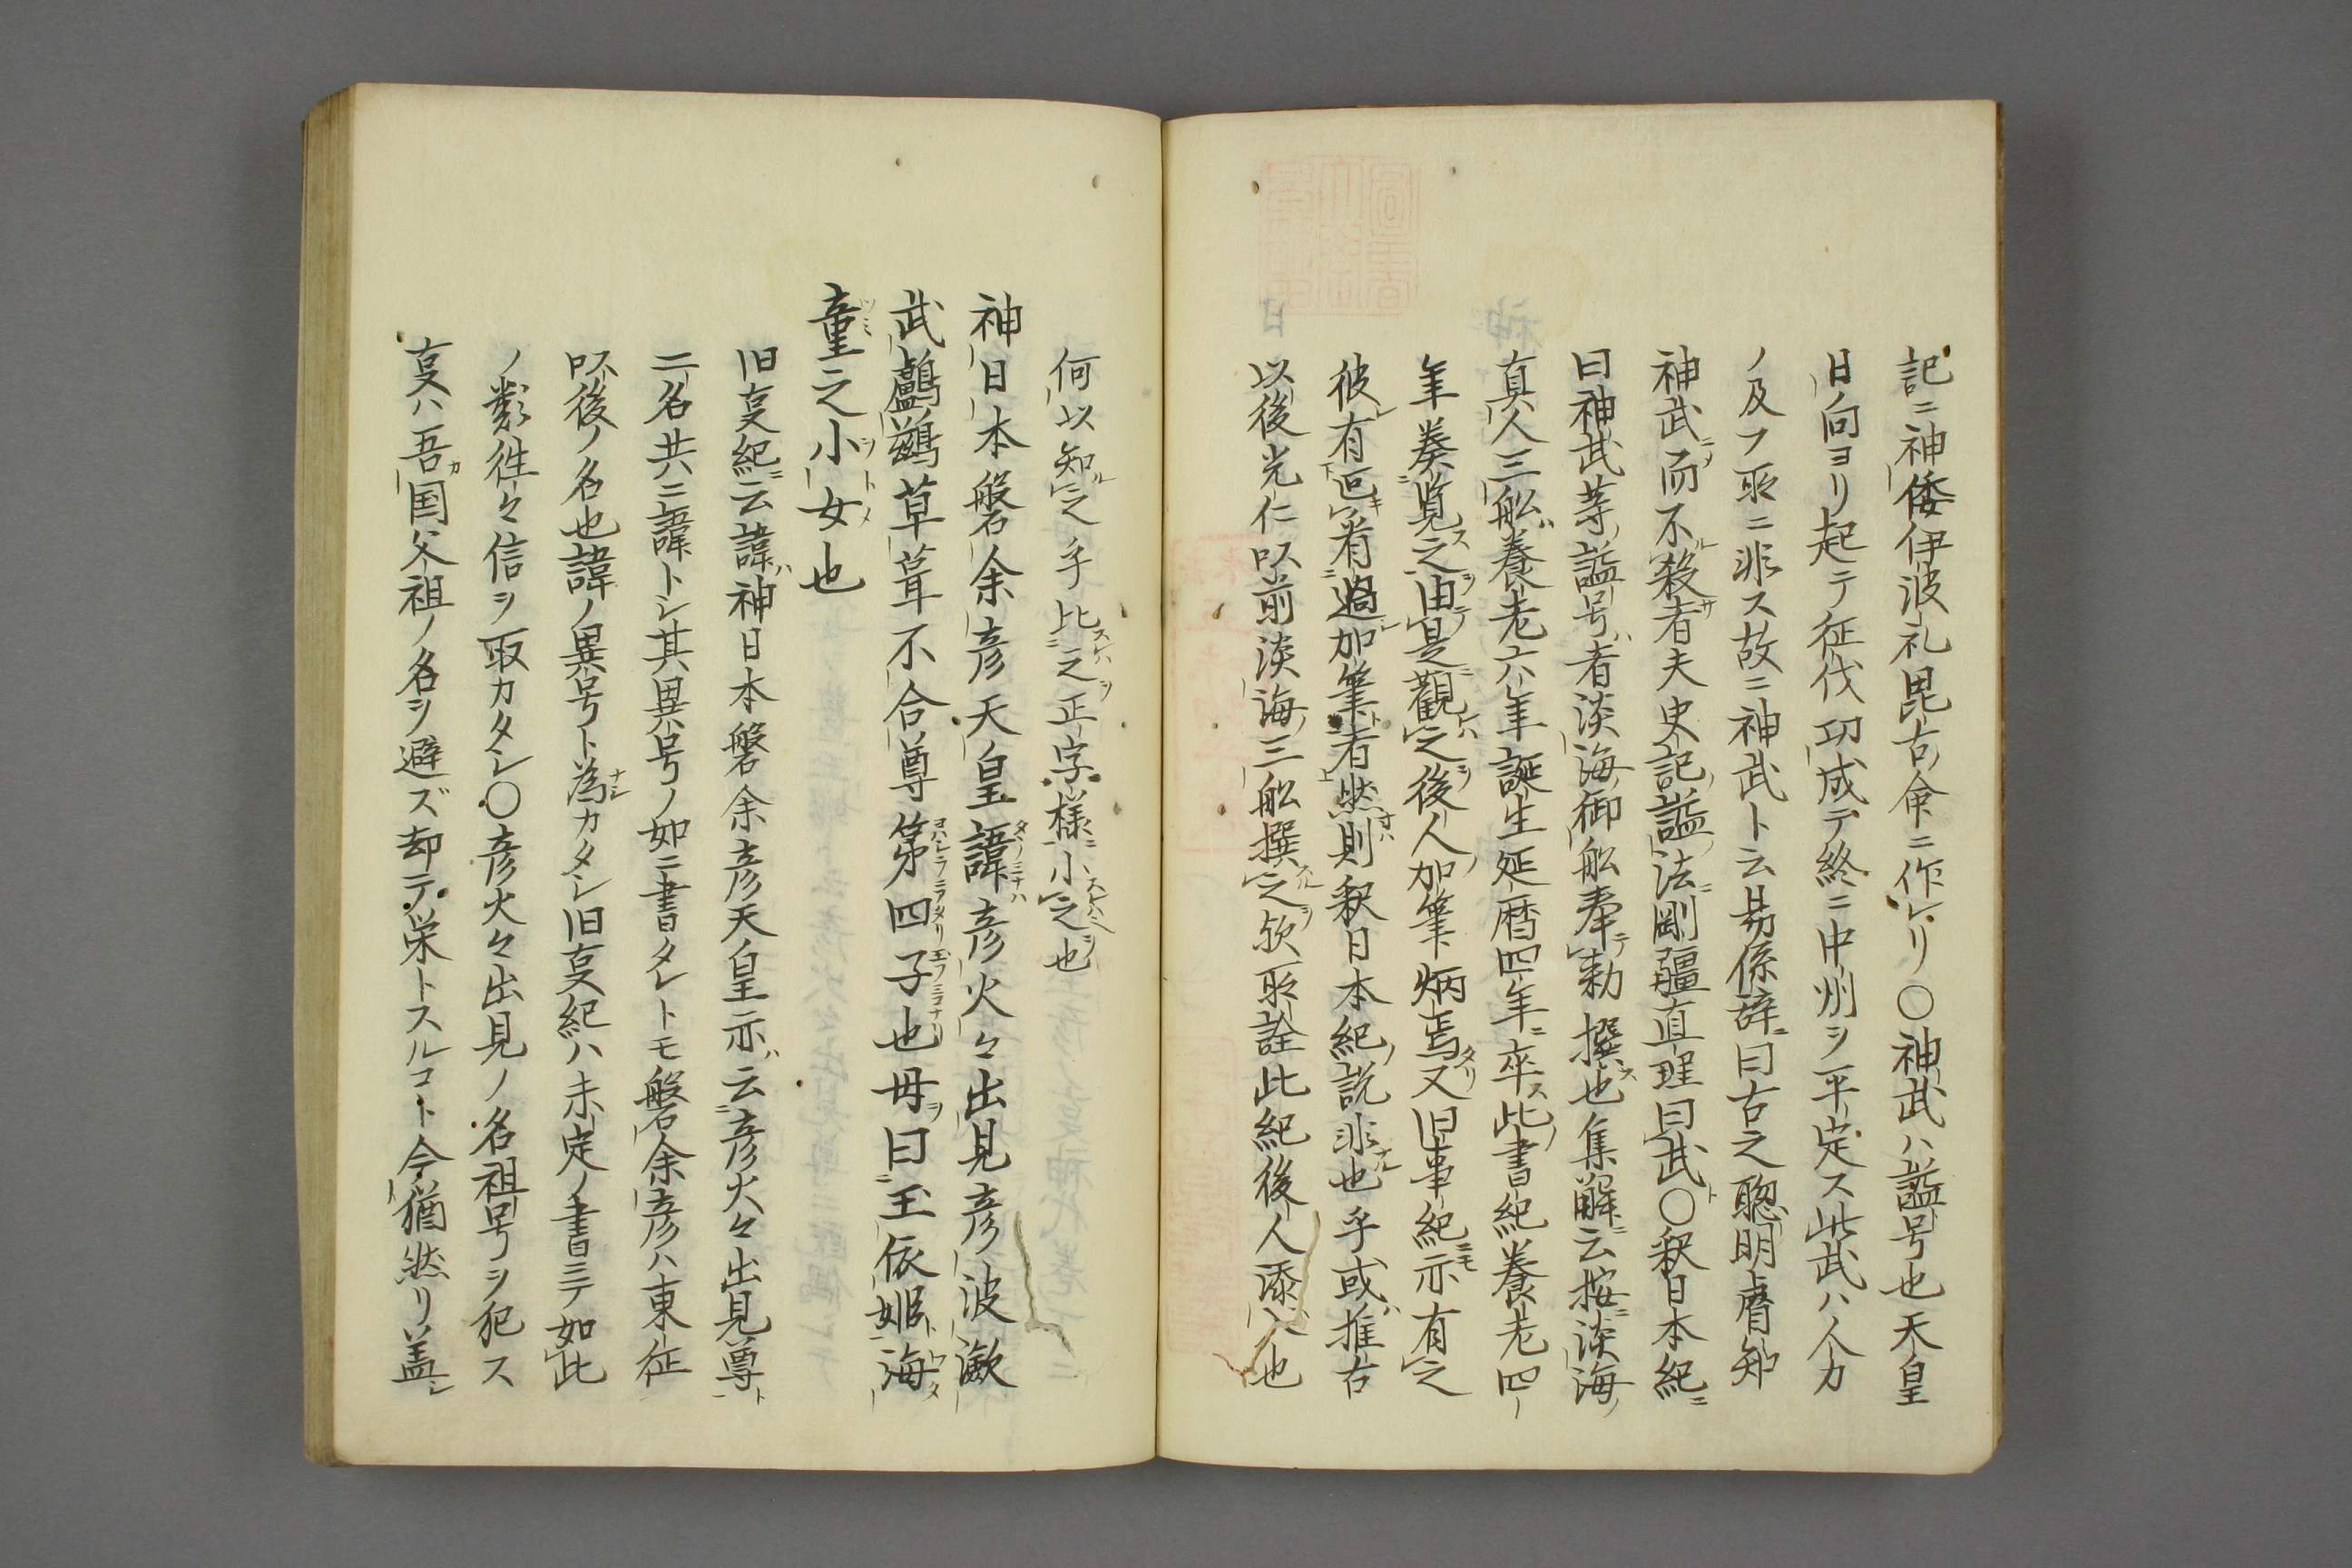 記ニ神倭伊波礼毘古命ニ作レリ〇神武ハ謚号也天皇
日向ヨリ起テ征伐功成テ終ニ中州ヲ平定ス此武ハ人力
ノ及フ所ニ非ス故ニ神武ト云易係辞ニ曰古之聡明睿知
神武ニノ而不殺者夫史記ノ謚法ニ剛彊直理曰武ト〇釈日本紀ニ
曰神武等ノ謚号ハ者淡海ノ御舩奉テ勅撰ス也集解ニ云按ニ淡海ノ
真人三舩ハ養老六年誕生延暦四年ニ卒ス此ノ書紀養老四
年奏覧ス之ヲ由テ是ニ観レハ之ヲ後人ノ加筆炳焉タリ又旧事紀ニモ亦有之
彼有下已ニ看過加筆ト者上然ラハ則釈日本紀ノ説非ナル也乎或ハ推古
以後光仁以前淡海ノ三舩撰スル之ヲ欤所詮此紀後人添入也
何以知ル之乎比スレハ之ヲ正字様ニ小スヘハ之也
神日本磐余彦天皇諱ハ彦火々出見彦波瀲
武鸕鷀草葺不合尊第四子也母ヲ曰玉依姫ト海
童之小女也
旧㕝紀ニ云諱ハ神日本磐余彦天皇亦ハ云彦火々出見尊ト
二名共ニ諱トシ其異号ノ如ニ書タレトモ磐余彦ハ東征
以後ノ名也諱ノ異号ト為シカタシ旧㕝紀ハ未定ノ書ニテ如此
ノ類往々信ヲ取カタシ〇彦火々出見ノ名祖号ヲ犯ス
㕝ハ吾カ国父祖ノ名ヲ避ズ却テ栄トスルコト今猶然リ蓋シ